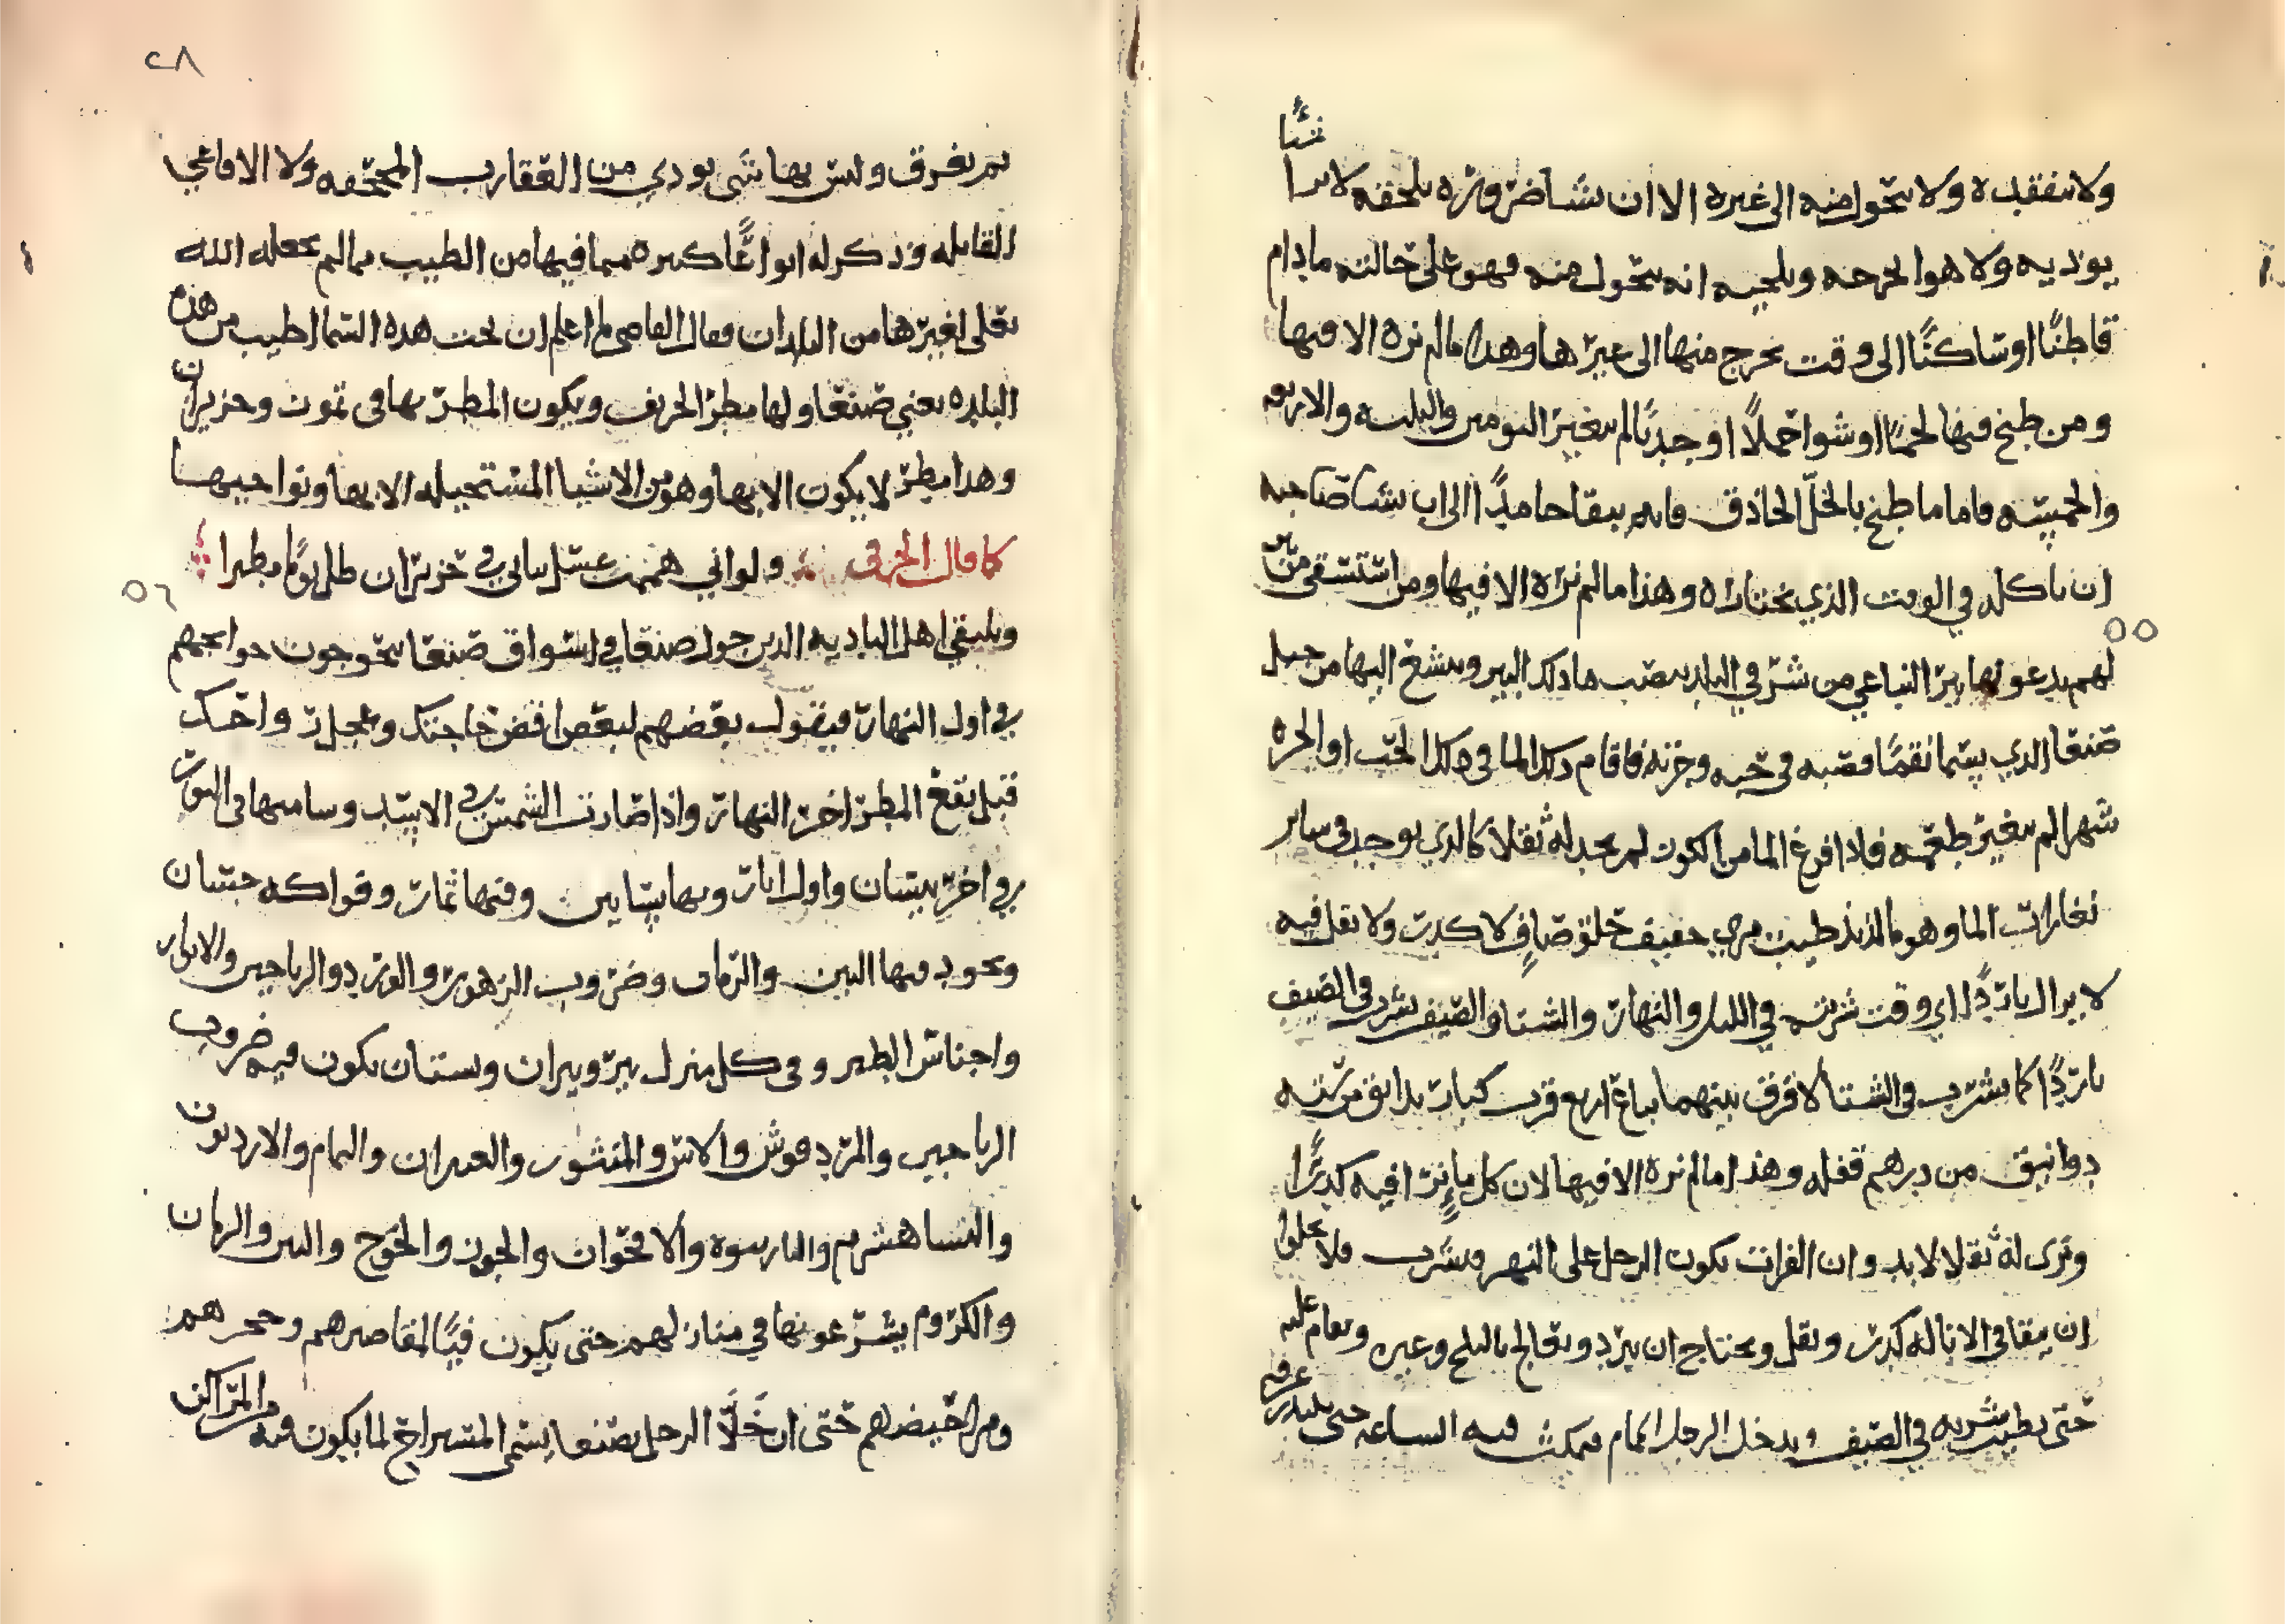 شتًا
ولا يتفقده ولا يتحول منه الى غيره الا ان يشا ضروره تلحقه لا برا
يوديه ولا هوا يحرحه ويلجيه انه يتحول منه فهو على حالته مادام
قاطنًا او ساكنًا الى وقت يخرج منها الى غيرها وهذا مالم نره الا فيها
ومن طبخ فيها لحمًا او شوا حملًا او جديًا لم يتغير اليومين والثلثه والاربعه
والخمسه فاما ما طبخ بالخلّ الحاذق فانه يبقا جامدًا الى ان يشا صاحبه
ان ياكله في الوقت الذي يختاره وهذا مالم نره الا فيها ومن استسقى من بير
٥٥
لهم يدعونها بير النباعي من شرّ في البلد تصب ما ذلك البير وينشع اليها من جبل
صنعا الذي يسما نقمًا فصبه في حبه وخزنه فاقام ذلك الما في ذلك الحب او الجره
شهرا لم يتغير طعمه فاذا افرغ الما من الكوز لم يجد له ثقلا كالذي يوجد في ساير
نغارات الما وهو ما لذيذ طيب مري خفيف حلو صافٍ لا كدر ولا ثقل فيه
لا يزال باردًا اي وقت شربته في الليل والنهار والشتا والصيف يشرب في الصيف
باردًا كما يشرب في الشتا لا فرق بينهما يباع اربع قرب كبار بدانق من سته
دوانيق من درهم قفله وهذا مالم نره الا فيها لان كل ماءٍ نرا فيه كدرًا
وترى له ثقلا لا بد وان الفرات يكون الرجل على النهر فيشرب فلا يخلوا
ان يبقا في الانا له كدر وثقل ويحتاج ان يبرد ويعالج بالثلج وغيره ويقام عليه
حتى يطيب شربه في الصيف ويدخل الرجل الحمام فيمكث فيه الساعه حتى يبتدر عرقه
٢٨
ثم يعرق وليس بها شى يودي من العقارب المجحفه ولا الافاعي
القاتله وذكر له انواعًا كثيره مما فيها من الطيب مما لم يجعله الله
تعلى لغيرها من البلدان فقال القاضى لم اعلم ان تحت هذه السما اطيب من هذه
البلده يعني صنعا ولها مطر الخريف ويكون المطر بها في تموز وحزيران
وهذا مطر لا يكون الا بها وهو من الاشيا المستحيله الا بها ونواحيها
كما قال الجرمى ولو اني هممت بغسل ثيابي في حزيران ظل يومًا مطيرا
٥٦
ويلتقي اهل الباديه الذين حول صنعا في اسواق صنعا يتحوجون حوايجهم
في اول النهار فيقول بعضهم لبعض اقض حاجتك وعجل رواحك
قبل يقع المطر اخر النهار واذا صارت الشمس في الاسد وساميها في الثور
في اخر نيسان واول ايار وبها بساتين وفيها ثمار وفواكه حسان
ويجود فيها التين والرمان وضروب الزهور والورد والرياحين والانوار
واجناس الطير وفي كل منزل بير وبيران وبستان يكون فيه ضروب
الرياحين والمردقوش والاس والمنثور والعبيران والنمام والاردبون
والنساهشرم والبارسوه والاقحوان والجوز والخوخ والتين والرمان
والكروم يشرعونها في منازلهم حتى يكون فيًا لمقاصرهم وحجرهم
ومراحيضهم حتى ان خَلَا الرجل بصنعا يسمى المستراح لما يكون فيه من المراكن